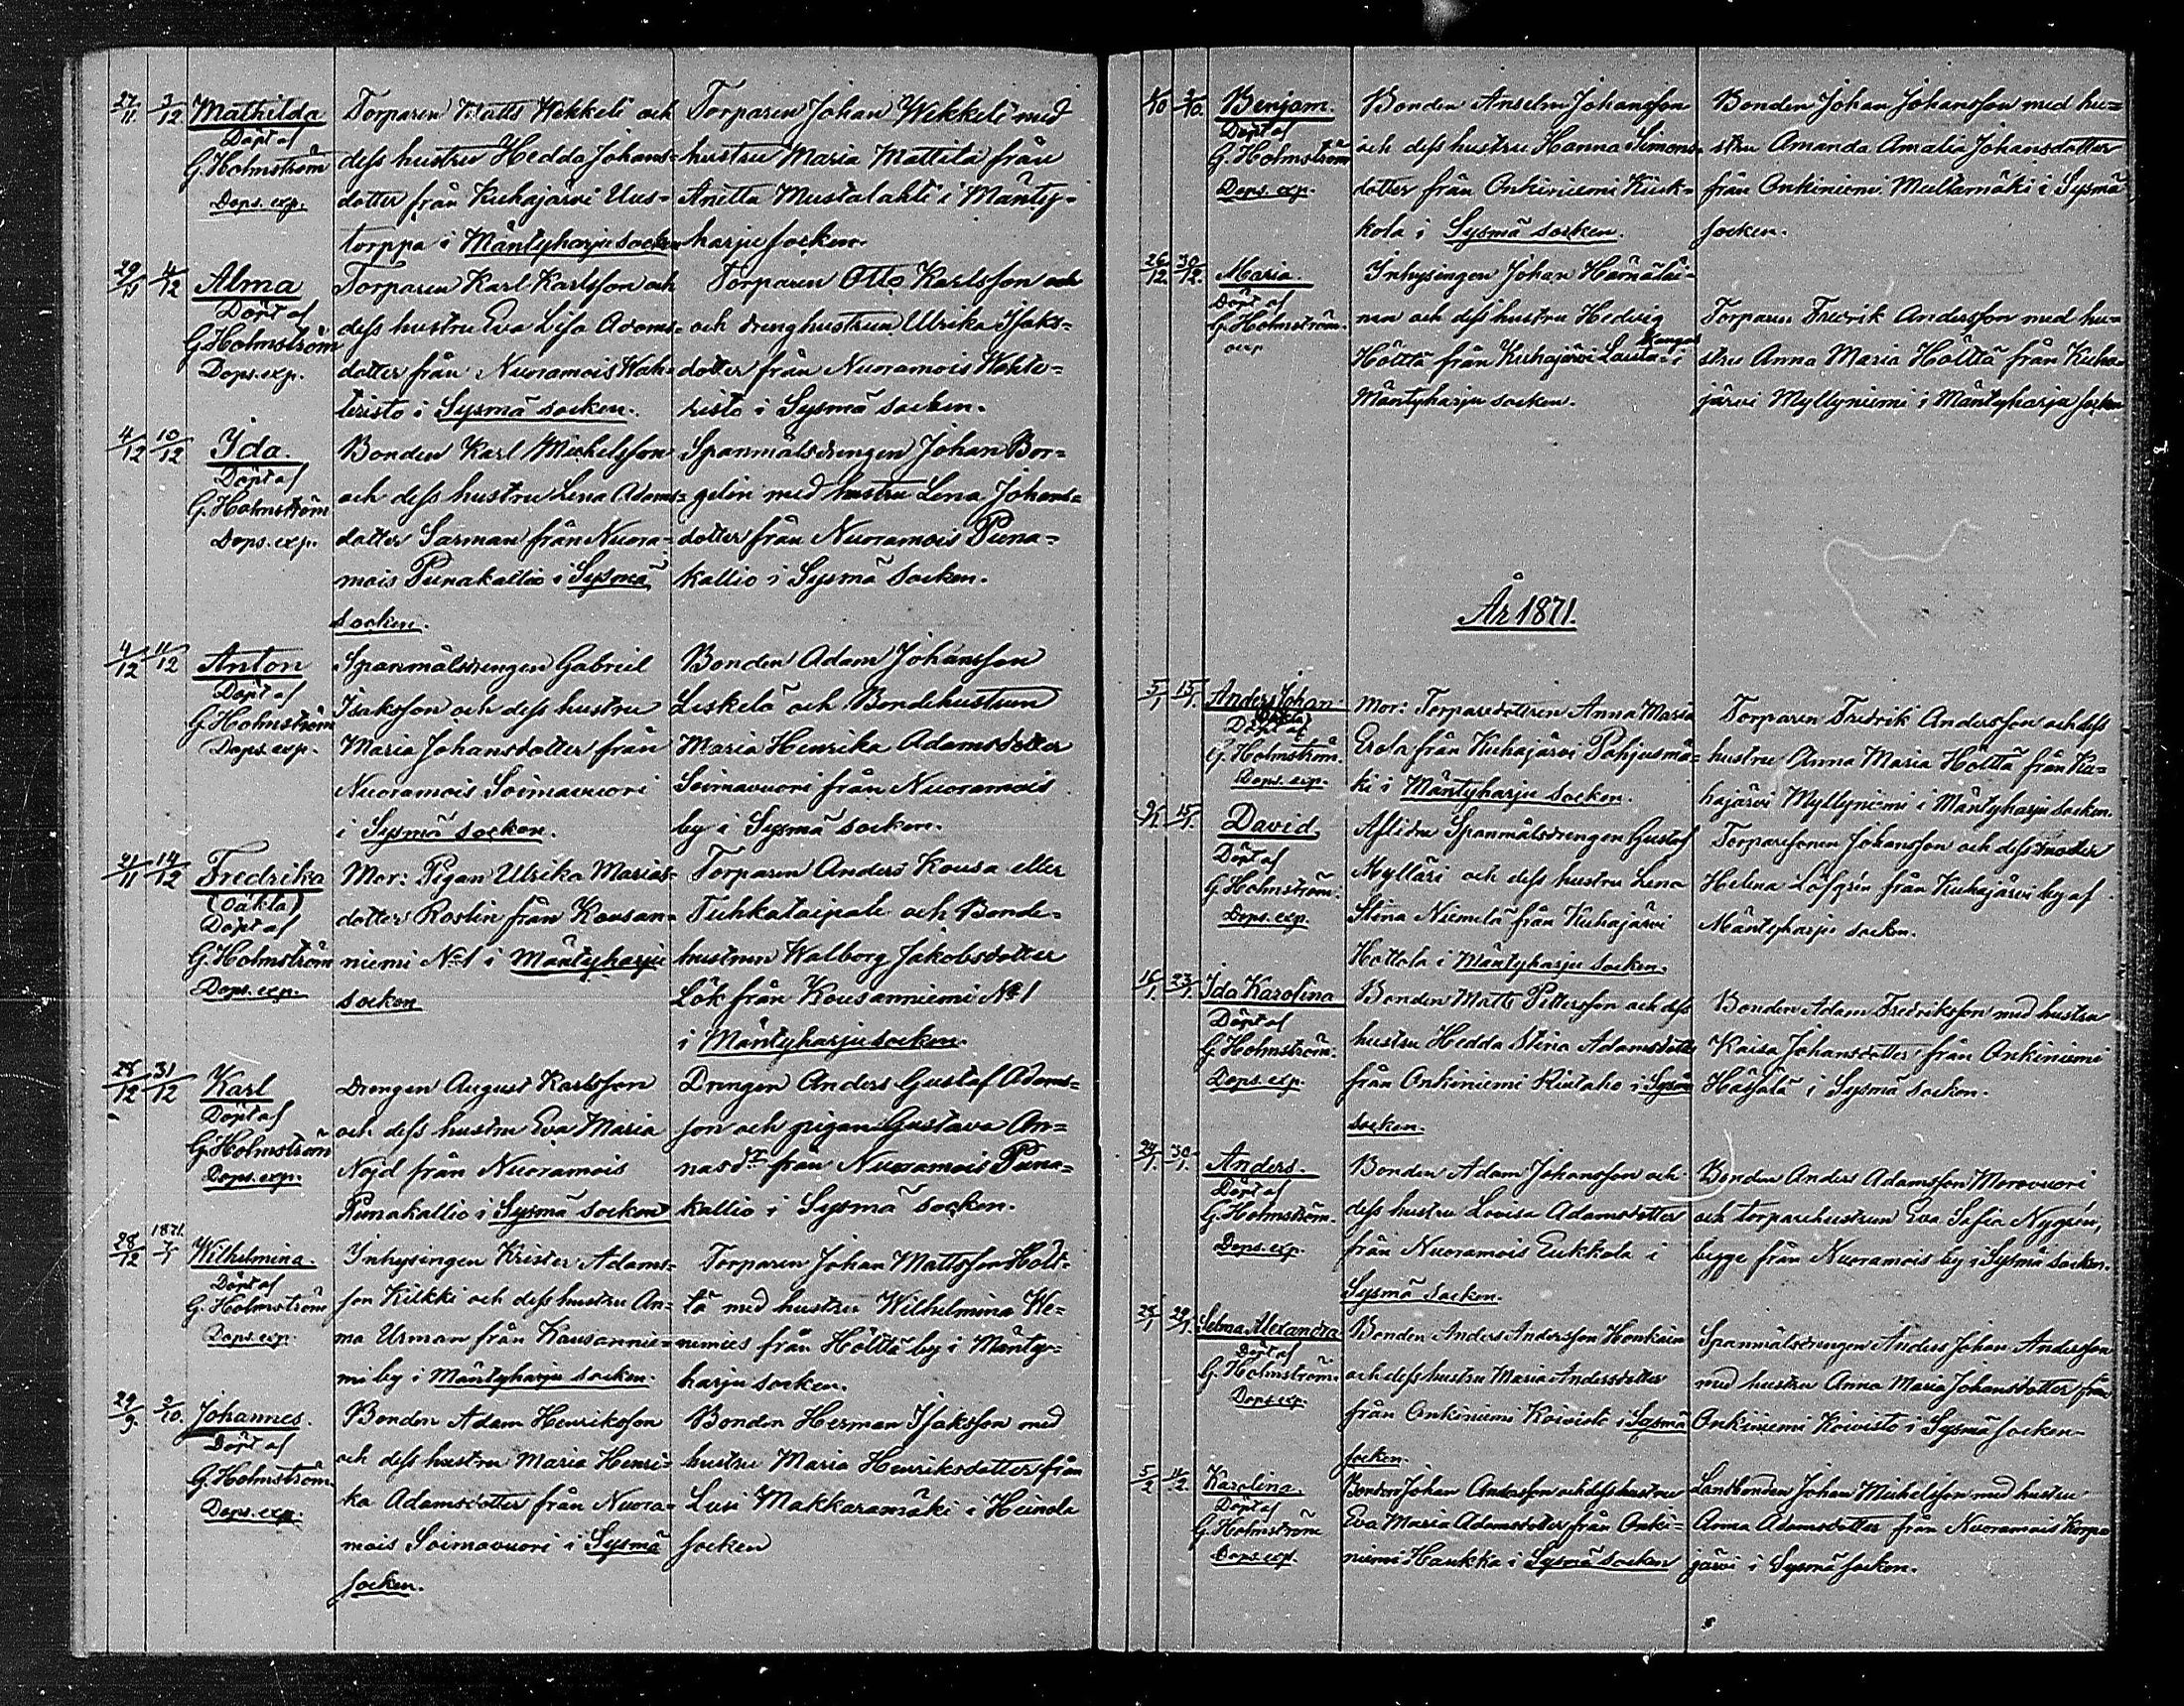 27/11 3/12 Mathilda
Döpt af
G. Holmström
Dops. exp.
Torparen Matts Wekkeli och
dess hustru Hedda Johans=
dotter från Kuhajärvi Uus=
torppa i Mäntyharju socken
Torparen Johan Wekkeli med
hustru Maria Mattila från
Anitta Mustalahti i Mänty=
harju socken.
29/11 4/12 Alma
Döpt af
G. Holmström
Dops. exp.
Torparen Karl Karlsson och
dess hustru Eva Lisa Adams=
dotter från Nuoramois Wah=
teristo i Sysmä socken.
Torparen Otto Karlsson och
och drenghustrun Ulrika Isaks=
dotter från Nuoramois Wahte=
risto i Sysmä socken.
4/12 10/12 Ida.
Döpt af
G. Holmström
Dops. exp.
Bonden Karl Michelsson
och dess hustru Lena Adams=
dotter Sarman från Nuora=
mois Punakallio i Sysmä
socken.
Spanmålsdrengen Johan Bor=
gelin med hustru Lena Johans=
dotter från Nuoramois Puna=
kallio i Sysmä socken.
4/12 11/12 Anton
Döpt af
G. Holmström
Dops. exp.
Spanmålsdrengen Gabriel
Isaksson och dess hustru
Maria Johansdotter från
Nuoramois Soimavuori
i Sysmä socken.
Bonden Adam Johansson
Leskelä och Bondehustrun
Maria Henrika Adamsdotter
Soimavuori från Nuoramois
by i Sysmä socken.
21/11 14/12 Fredrika
(Oäkta)
Döpt af
G. Holmström
Dops. exp.
Mor: Pigan Ulrika Marias=
dotter Roslin från Kousan=
niemi No 1 i Mäntyharju
socken
Torparen Anders Kousa eller
Tuhkataipale och Bonde=
hustrun Walborg Jakobsdotter
Lök från Kousanniemi No 1
i Mäntyharju socken.
28/12 31/12 Karl
Döpt af
G. Holmström
Dops. exp.
Drengen August Karlsson
och dess hustru Eva Maria
Nojd från Nuoramois
Punakallio i Sysmä socken
Drengen Anders Gustaf Adams=
son och pigan Gustava An=
nasdr från Nuoramois Puna=
kallio i Sysmä socken.
28/12 1871. Wilhelmina.
Döpt af
G. Holmström
Dops. exp.
Inhysingen Krister Adams=
son Kilkki och dess hustru An=
na Urman från Kousannie=
mi by i Mäntyharju socken.
Torparen Johan Mattsson Hölt=
tä med hustru Wilhelmina We=
nimies från Hölttä by i Mänty=
harju socken.
29/9 2/10. Johannes.
Döpt af
G. Holmström.
Dops. exp.
Bonden Adam Henriksson
och dess hustru Maria Henri=
ka Adamsdotter från Nuora=
mois Soimavuori i Sysmä
socken.
Bonden Herman Isaksson med
hustru Maria Henriksdotter från
Lusi Makkaramäki i Heinola
socken
Benjam.
Döpt af
G. Holmström
Dops. exp.
Bonden Anselm Johansson
och dess hustru Hanna Simons=
dotter från Onkiniemi Kuck=
kola i Sysmä socken.
Bonden Johan Johansson med hu=
stru Amanda Amalia Johansdotter
från Onkiniemi Multamäki i Sysmä
socken.
26/12 30/12. Maria.
Döpt af
G. Holmström.
exp
Inhysingen Johan Hämäläi=
nen och dess hustru Hedvig
Hölttä från Kuhajärvi Lauta=kangas i
Mäntyharju socken.
Torparen Fredrik Andersson med hu=
stru Anna Maria Hölttä från Kuha=
järvi Myllyniemi i Mäntyharju socken
År 1871.
5/1 15/1. Anders Johan
(Oäkta)
Döpt af
G. Holmström.
Dops. exp.
Mor: Torparedottren Anna Maria
Erola från Kuhajärvi Pohjusmä=
ki i Mäntyharju socken.
Torparen Fredrik Andersson och dess
hustru Anna Maria Hölttä från Ku=
hajärvi Myllyniemi i Mäntyharju socken.
9/1. 15/1. David
Döpt af
G. Holmström.
Dops. exp.
Aflidne Spanmålsdrengen Gustaf
Mylläri och dess hustru Lena
Stina Niemelä från Kuhajärvi
Hottola i Mäntyharju socken.
Torparesonen Johansson och dess moder
Helena Löfgrén från Kuhajärvi by af
Mäntyharju socken.
16/1. 23/1. Ida Karolina
Döpt af
G. Holmström.
Dops. exp.
Bonden Matts Pettersson och dess
hustru Hedda Stina Adamsdotter
från Onkiniemi Rintaho i Sysmä
socken.
Bonden Adam Fredriksson med hustru
Kaisa Johansdotter från Onkiniemi
i Sysmä socken.
24/1. 30/1. Anders.
Döpt af
G. Holmström.
Dops. exp.
Bonden Adam Johansson och
dess hustru Lovisa Adamsdotter
från Nuoramois Eukkola i
Sysmä socken.
Bonden Anders Adamsson Moravuori
och torparehustrun Eva Sofia Nygrén,
begge från Nuoramois by i Sysmä socken.
29/1. Selma Alexandra
Döpt af
G. Holmström.
Dops. exp.
Bonden Anders Andersson Honkain
och dess hustru Maria Andersdotter
från Onkiniemi Koivisto i Sysmä
socken.
Spanmålsdrengen Anders Johan Andersson
med hustru Anna Maria Johansdotter från
Onkiniemi Koivisto i Sysmä socken.
5/2 11/2. Karolina
Döpt af
G. Holmström
Dops. exp.
Bonden Johan Andersson och dess hustru
Eva Maria Adamsdotter från Onki=
niemi Haukka i Sysmä socken
Landbonden Johan Michelsson med hustru
Anna Adamsdotter från Nuoramois Korpi
järvi i Sysmä socken.